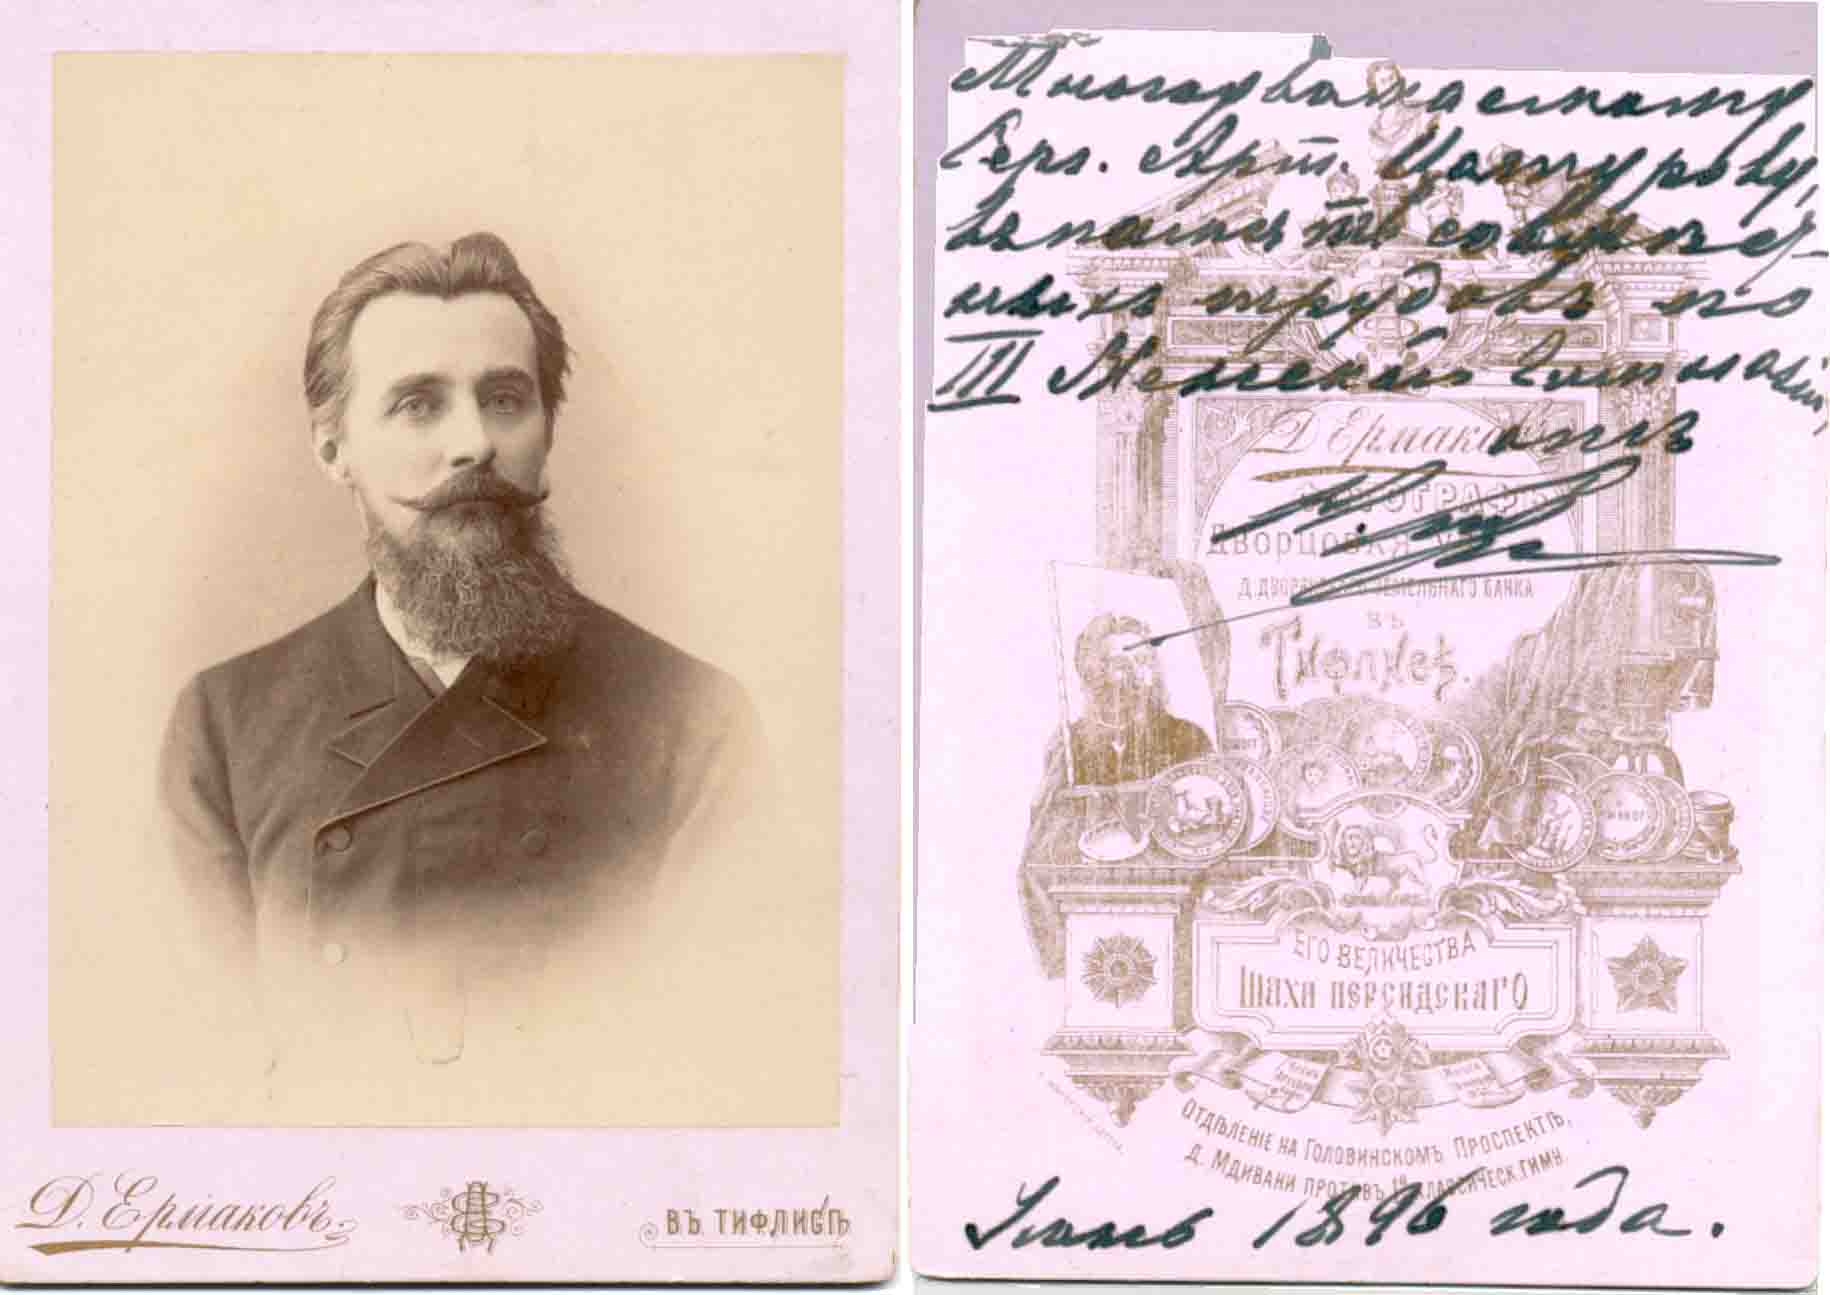 Д. Ермаковъ
ВЪ ТИФЛИСѢ
Многоуважаемому
Серг. Арт. Цатурову,
въ память совмѣст-
ныхъ трудовъ по
III Женской Гимназіи,
отъ
Д Ермаковъ
ФОТОГРАФЪ
ДВОРЦОВАЯ
Д. ДВОРЯНСКАГО ЗЕМЕЛЬНАГО БАНКА
ВЪ
Тифлисѣ.
ЕГО ВЕЛИЧЕСТВА
Шаха персидскаго
ОТДѢЛЕНІЕ НА ГОЛОВИНСКОМЪ ПРОСПЕКТѢ,
Д. МДИВАНИ ПРОТИВЪ 1й КЛАССИЧЕСК. ГИМН.
1896 года.